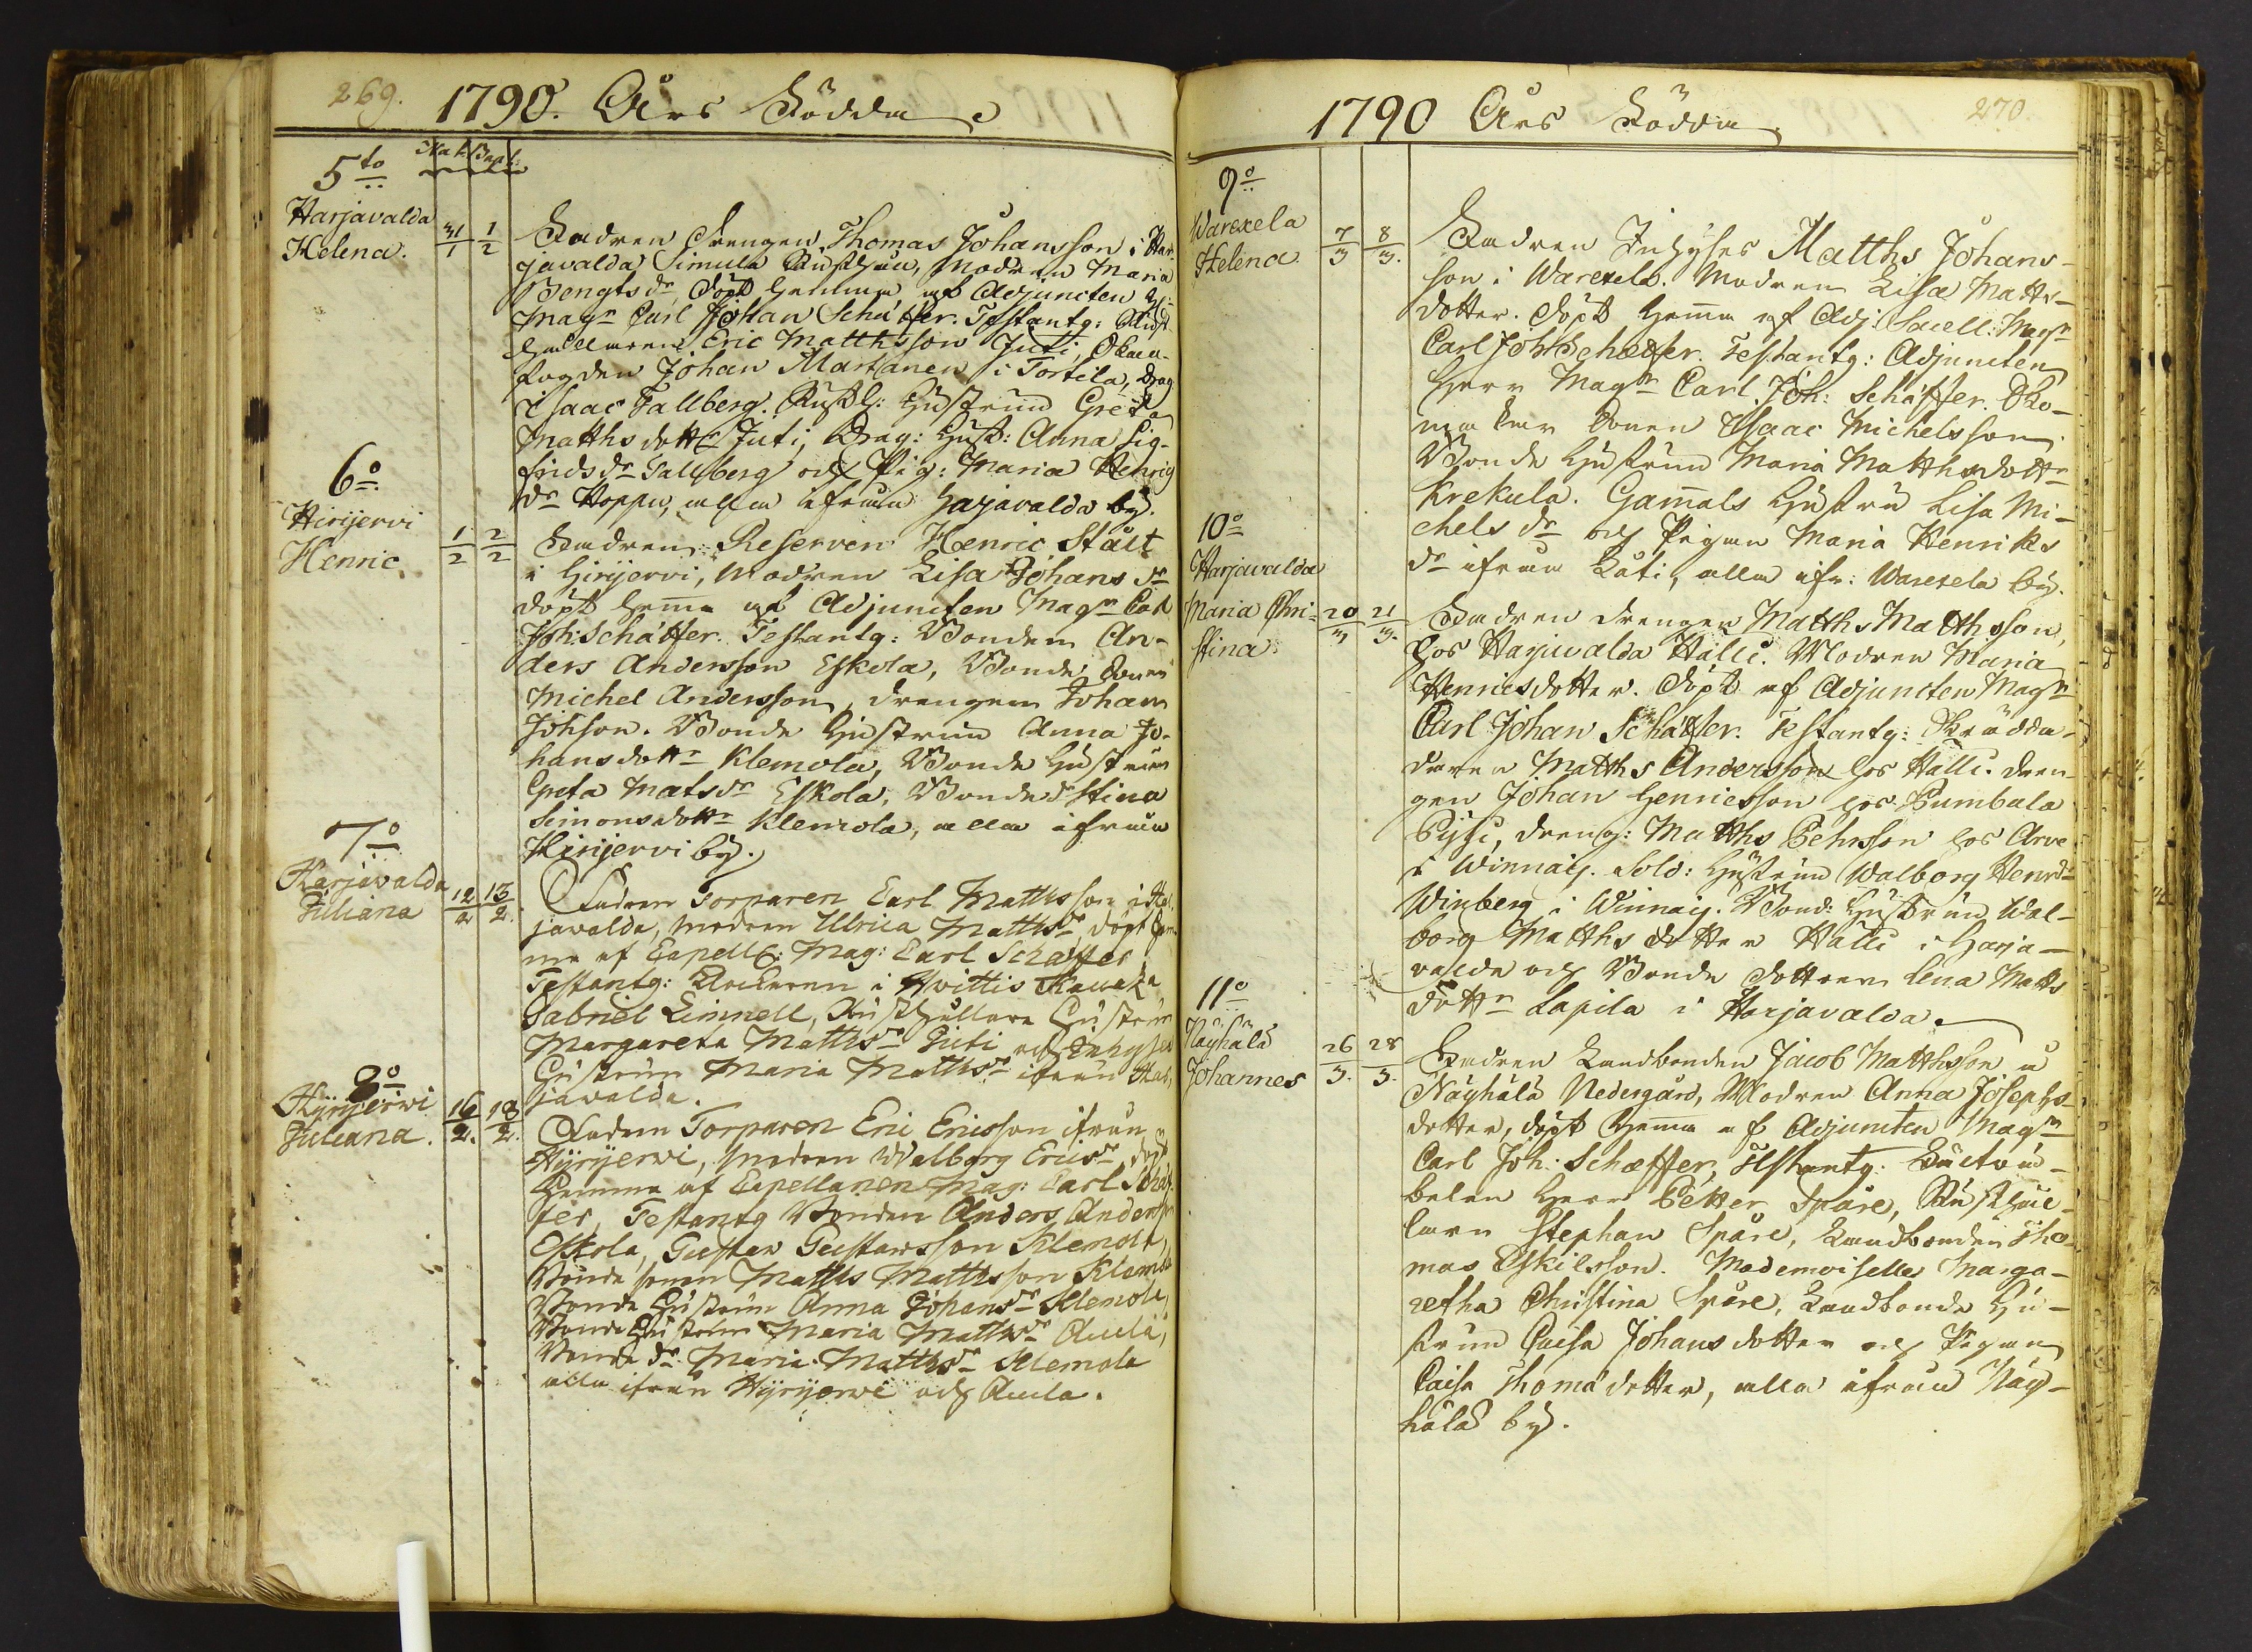 269.
1790. Års Födde
Nat: Bapt:
5to
Harjavalda
Helena.
31/1 1/2
Fadren Drengen Thomas Johansson i Har-
javalda Simula Rusthåll, Modren Maria
Bengtsdr, döpt hemma af Adjuncten H:
Magr Carl Johan Schäffer. Testantg: Rust
hållaren Eric Matthsson Juti,
fogden Johan Martanen i Torttila, Drag
Isaac Tallberg. Rusth: Hustrun Greta
Matths dottr Juti, Drag: Hust: Anna Sig-
fridsdr Tallberg och Pig: Maria Henrig
dr Hoppu, alla ifrån Harjavalda by.
6o
Hirijervi
Henric
1/2 2/2
Fadren Reserven Henric Stålt
i Hirijervi, Modren Lisa Johans dr
döpt hema af Adjuncten Magr Carl
Joh: Schäffer. Testantg: Bonden An-
ders Andersson Eskola, Bonde Sonen
Michel Andersson, Drengen Johan
Johsson. Bonde Hustrun Anna Jo-
hansdottr Klemola, Bonde Hustrun
Greta Matsdr Eskola, Bonde dr Stina
Simonsdottr Klemola, alla ifrån
Hirijervi by.
7o
Harjavalda
Juliana
12/2 13/2.
Fadren Torparen Carl Matthsson i Har
javalda, modren Ulrica Matthsdr, döpt hem-
ma af Capell: Mag: Carl Schäffer
Testantg: Klockaren i Hvittis
Gabriel Linnell, Rusthållare Hustrun
Margareta Matthsdr Juti och Inhyses
Hustrun Maria Matthsdr ifrån Har-
javalda.
8o
Hyrijerwi
Juliana.
16/2. 18/2.
Fadren Torparen Eric Ericsson ifrån
Hyrijerwi, modren Walborg Ericsdr, döpt
Hemma af Capellanen Mag: Carl Schäf-
fer, Testantg Bonden Anders Andersson
Eskola, Gustav Gustavsson Klemola,
Bonde sonen Matths Matthsson Klemola
Bonde Hustrun Anna Johansdr Klemola,
Bonde Hustrun Maria Matthsdr
Bonde dr Maria Matthsdr Klemola
alla ifrån Hyrijerwi och
270
1790 Års Födde
9o
Warexela
Helena
7/3 8/3.
Fadren Inhyses Matths Johans-
son i Warexela. Modren Lisa Matts-
dotter. Döpt hema af Adj: Sacell: Magr
Carl Joh Schæffer. Testantg: Adjuncten
Herr Magr Carl Joh: Schäffer. Sko-
makar Sonen Isaac Michelsson.
Bonde Hustrun Maria Matthsdottr
Krekula. Gammals Hustru Lisa Mi-
chels dr och Pigan Maria Henriks
dr ifrån Kåti, alla ifr: Warexela by.
10o
Harjavalda
Maria Chri-
stina
20/3 21/3.
Fadren Drengen Matths Matthsson,
hos Harjavalda Hålli. Modren Maria
Henricsdotter. Döpt af Adjuncten Magr
Carl Johan Schäffer. Testantg: Skrädda-
daren Matths Andersson hos Hålli. Dren-
gen Johan Henricsson hos Pumbala
Pijsi, Dreng: Matths Pehrsson hos Arve
i Winnäij. Sold: Hustrun Walborg Henrdr
Winberg i Winnäij. Bond: Hustrun Wal-
borg Matths dotter Hålli i Harja-
valda och Bonde dottren Lena Matts
dottr Lapila i Harjavalda.
11o
Näyhälä
Johannes
26/3. 28/3.
Fadren Landbonden Jacob Matthsson å
Näyhälä Nedergård, Modren Anna Josephs-
dotter, döpt hema af Adjuncten Magr
Carl Joh: Schæffer, Testantg:
Herr Petter Spåre, Rusthål-
laren Stephan Spåre, Landbonden Tho-
mas Eskilsson. Mademoiselle Marga-
retha Christina Spåre, Landbonde Hu-
strun Caisa Johansdotter och Pigan
Caisa Thomædotter, alla ifrån Näy-
hälä by.